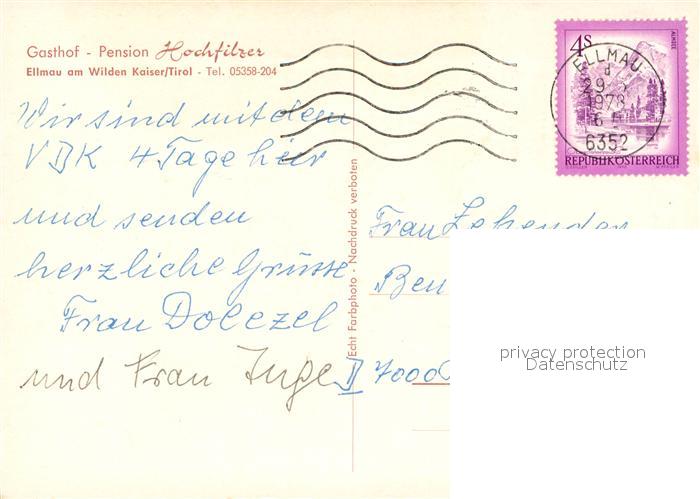 Gasthof - Pension Hochfilzer
Ellmau am Wilden Kaiser/Tirol - Tel. 05358-204
Wir sind mit dem
VBK 4 Tage hier
und senden
herzliche Grüsse
Frau Dolezel
und Frau Inge
Echt Farbphoto - Nachdruck verboten
4S
ALMSEE
REPUBLIK ÖSTERREICH
ELLMAU
29
1978
6352
Frau
Ben
D 7000
privacy protection
Datenschutz